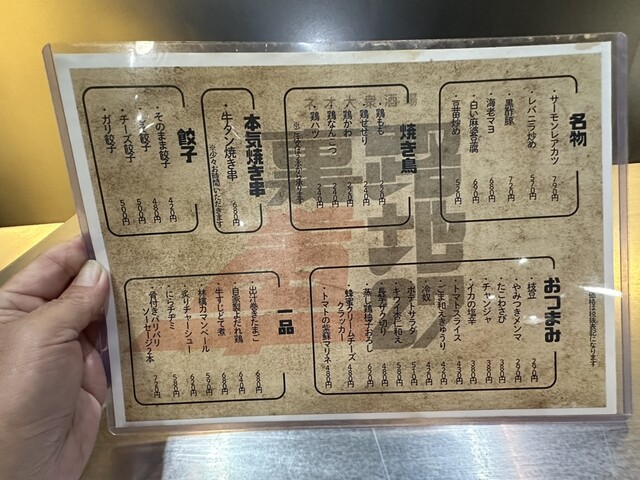 名物
・サーモンレアカツ 790円
・レバニラ炒め 570円
・黒酢豚 720円
・海老マヨ 680円
・白い麻婆豆腐 690円
・豆苗炒め 520円
ネオ大衆酒場
焼き鳥
・鶏もも
・鶏せせり
・鶏かわ
・鶏なんこつ 240円
・鶏ハツ 240円
本気焼き串
・牛タン焼き串 680円
※少々お時間いただきます
餃子
・そのまま餃子 420円
餃子 480円
・チーズ餃子 500円
・ガリ餃子 500円
おつまみ
・枝豆 290円
・やみつきメンマ 290円
・たこわさび 380円
・チャンジャ 380円
・イカの塩辛 380円
・トマトスライス 430円
・ごま和えきゅうり 420円
・冷奴 420円
・ポテトサラダ 510円
・キクイモ 和え 580円
・長芋ザク切り 480円
・蒸し鶏柚子おろし 620円
・蜂蜜クリームチーズ
クラッカー 480円
・トマトの紫蘇マリネ 480円
一品
・出汁巻きたまご 680円
・自家製よだれ鶏 640円
・牛すじどて煮 680円
・林檎カマンベール 590円
・炙りチャーシュー 650円
・にらチヂミ 680円
・骨付きパリパリ
ソーセージ2本 720円